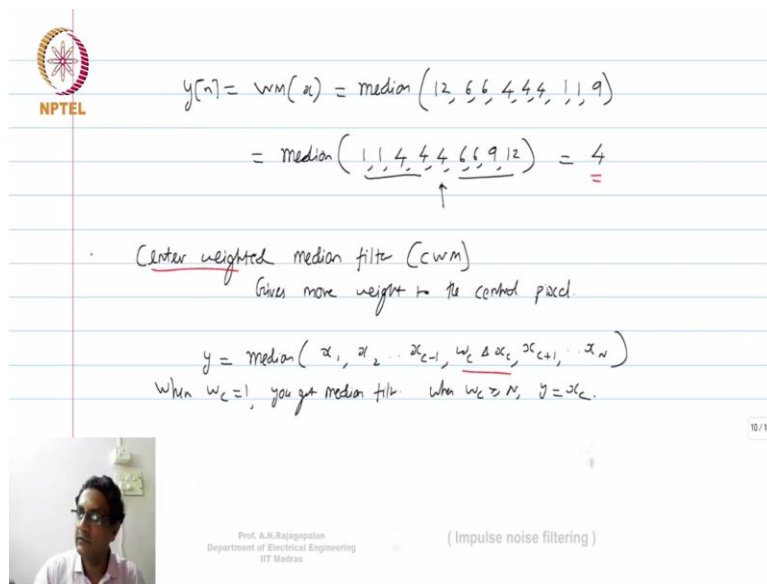 NPTEL
y[n] = WM(x) = median (12, 6, 6, 4, 4, 4, 1, 1, 9)
= median (1, 1, 4, 4, 4, 6, 6, 9, 12) = 4
Center weighted median filter (CWM)
Gives more weight to the central pixel.
y = median (x₁, x₂ .. x_{c-1}, w_c Δ x_c, x_{c+1}, .. x_N)
When w_c = 1, you get median filt. when w_c ≥ N, y = x_c.
10 / 1
Prof. A.N.Rajagopalan
Department of Electrical Engineering
IIT Madras
( Impulse noise filtering )